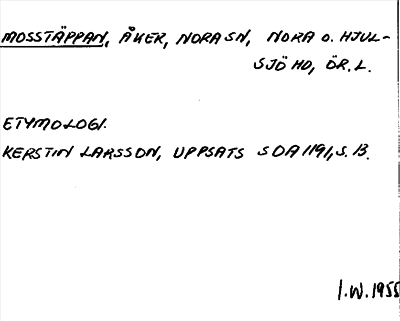 MOSSTÄPPAN, ÅKER, NORA SN, NORA O. HJUL-
SJÖ HD, ÖR. L.
ETYMOLOGI.
KERSTIN LARSSON, UPPSATS SOA 1191, S. 13.
I.W. 1955